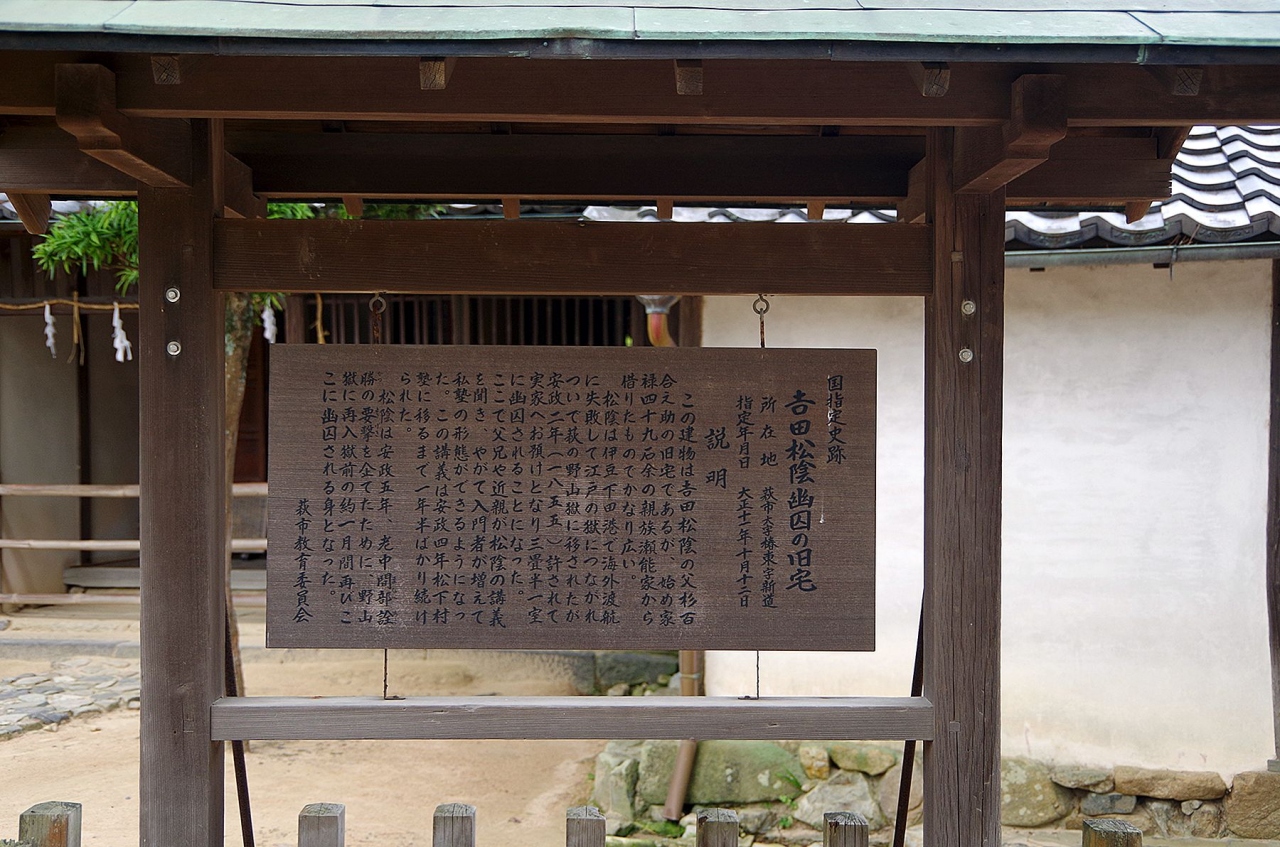 国指定史跡
吉田松陰幽囚の旧宅
所在地　萩市大字椿東字新道
指定年月日　大正十一年十月十二日
説明
この建物は吉田松陰の父杉百
合之助の旧宅であるが、始め家
禄四十九石余の親族瀬能家から
借りたものでかなり広い。
松陰は伊豆下田港で海外渡航
に失敗して江戸の獄につながれ
ついで萩の野山獄に移されたが
安政二年（一八五五）許されて
実家へお預けとなり三畳半一室
に幽囚されることになった。
ここで父兄や近親が松陰の講義
を聞き、やがて入門者が増えて
私塾の形態ができるようになっ
た。この講義は安政四年松下村
塾に移るまで一年半ばかり続け
られた。
松陰は安政五年、老中間部詮
勝の要撃を企てたために、野山
獄に再入獄前の約一月間再びこ
こに幽囚される身となった。
萩市教育委員会